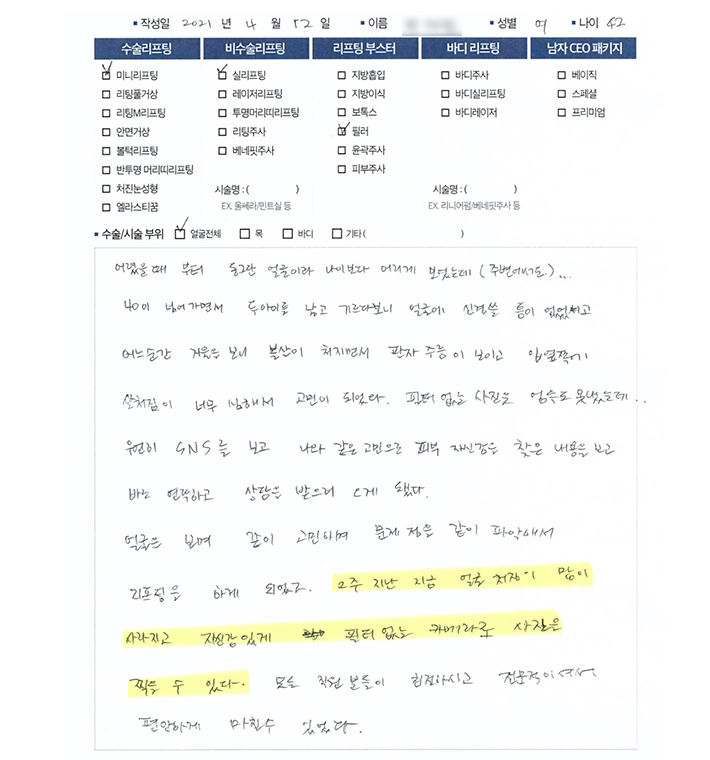 ▪ 작성일 2021 년 4 월 12 일 ▪ 이름 ▪ 성별 여 ▪ 나이 42
수술리프팅 비수술리프팅 리프팅 부스터 바디 리프팅 남자 CEO 패키지
미니리프팅 실리프팅 지방흡입 바디주사 베이직
리팅풀거상 레이저리프팅 지방이식 바디실리프팅 스페셜
리팅M리프팅 투명머리띠리프팅 보톡스 바디레이저 프리미엄
안면거상 리팅주사 필러
볼턱리프팅 베네핏주사 윤곽주사
반투명 머리띠리프팅 피부주사
처진눈성형 시술명 : ( ) 시술명 : ( )
엘라스티꿈 EX. 울쎄라/민트실 등 EX. 리니어펌/베네핏주사 등
▪ 수술/시술 부위 얼굴전체 목 바디 기타 ( )
어렸을때 부터 동그란 얼굴이라 나이보다 어리게 보였는데 (주변에서도)...
40이 넘어가면서 두아이를 낳고 기르다보니 얼굴에 신경쓸 틈이 없었고
어느순간 거울을 보니 볼살이 처지면서 팔자 주름이 보이고 입옆쪽에
살처짐이 너무 심해서 고민이 되었다. 필터 없는 사진은 엄두도 못냈는데..
우연히 SNS를 보고 나와 같은 고민으로 피부 자신감을 찾은 내용을 보고
바로 연락하고 상담을 받으러 오게 됐다.
얼굴을 보며 같이 고민하며 문제점을 같이 파악해서
리프팅을 하게 되었고. 2주 지난 지금 얼굴 처짐이 많이
사라지고 자신감있게 필터 없는 카메라로 사진을
찍을 수 있다. 모든 직원 분들이 친절하시고 전문적이셔서
편안하게 마칠수 있었다.